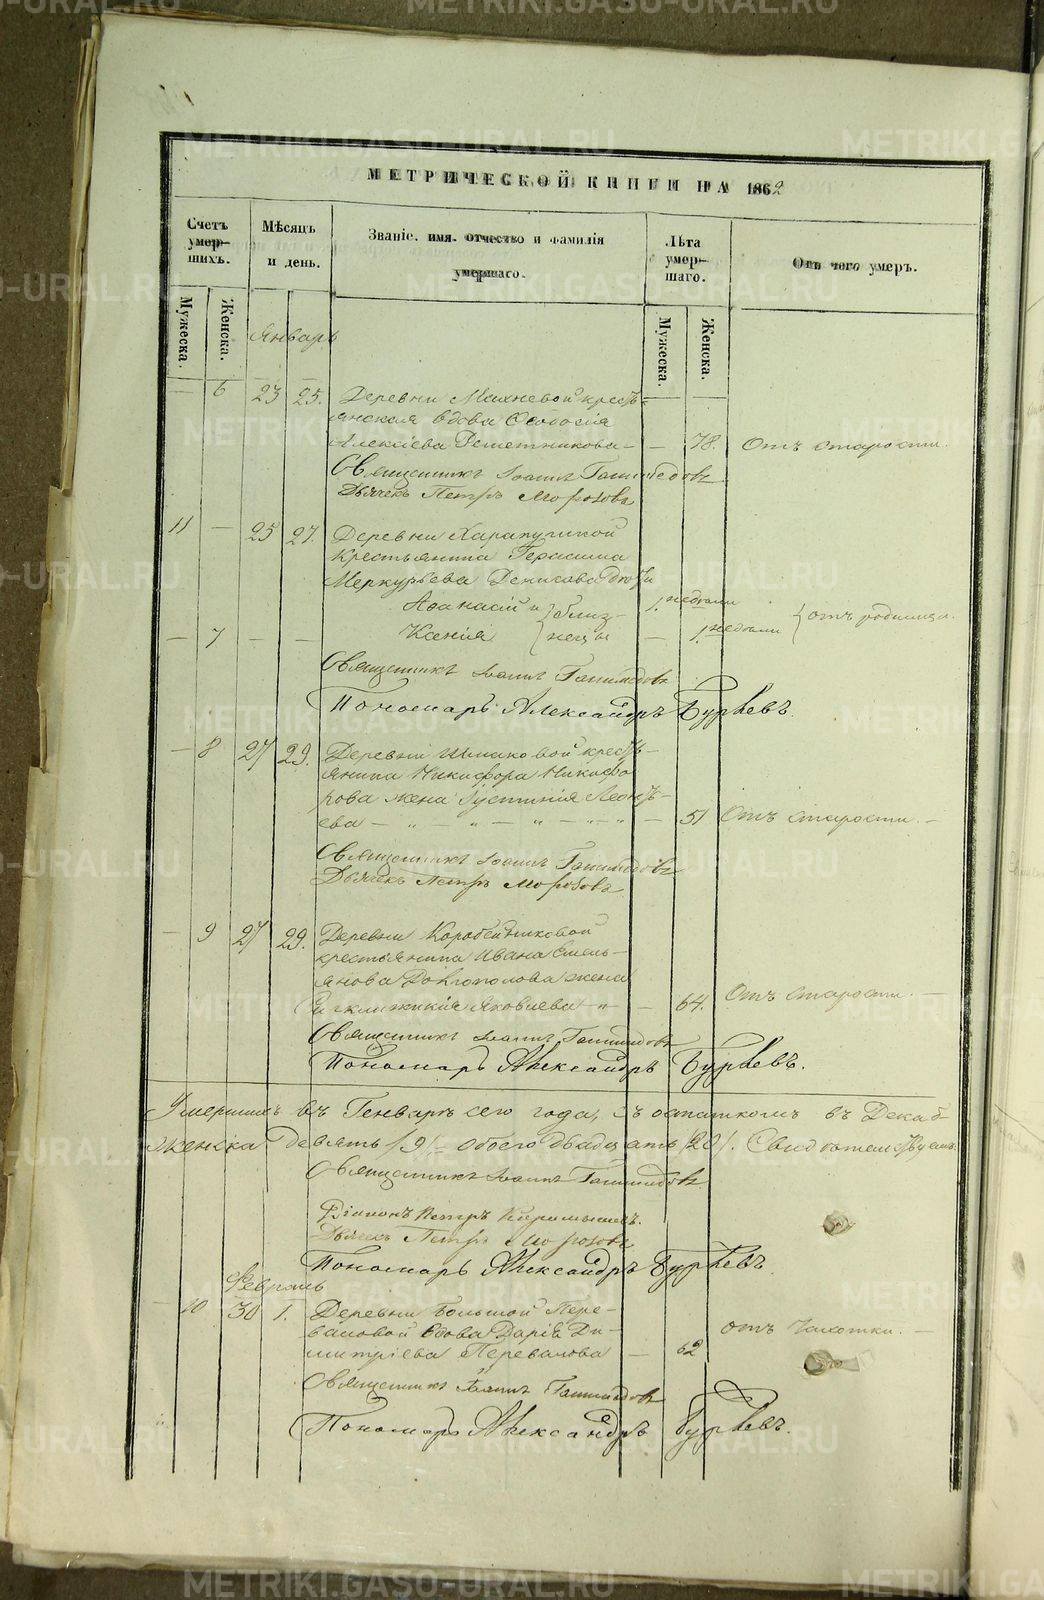 МЕТРИЧЕСКОЙ КНИГИ НА 1862
Счетъ умер-шихъ.
Мѣсяцъ и день.
Званіе, имя, отчество и фамилія умершаго.
Лѣта умер-шаго.
Отъ чего умеръ.
Мужеска. Женска.
Мужеска. Женска.
Январь
— 6 23 25. Деревни Махневой кресть-
янская вдова Ѳеодосія
Алексіева Решетникова — — 78. Отъ старости.
Священникъ Іоаннъ
Дьячекъ Петръ Морозовъ
11 — 25 27. Деревни
Крестьянина Герасима
Меркурьева Денисова дѣти
Аѳанасій и близ- 1. недѣли
— 7 — — Ксенія нецы — 1. недѣли отъ родимца.
Священникъ Іоаннъ
Пономарь Александръ
— 8 27 29. Деревни кресть-
янина Никифора Никифо
рова жена Іустинія Леонть-
ева — — — — — — 51 Отъ старости. —
Священникъ Іоаннъ
Дьячекъ Петръ Морозовъ
— 9 27 29. Деревни Коробейниковой
крестьянина Ивана Емель-
янова жена
Яковлева — — 64. Отъ старости. —
Священникъ Іоаннъ
Пономарь Александръ
Умершихъ въ Генварѣ сего года, съ остаткомъ въ Декаб-
женска девять /9/, — обоего двадцать /20/. Свидѣтельствуемъ
Священникъ Іоаннъ
Діаконъ Петръ
Дьячекъ Петръ Морозовъ
Пономарь Александръ
Февраль
— 10 30 1. Деревни Большой Пере-
валовой вдова Дарія Ди-
митріева Перевалова — 62 отъ Чахотки. —
Священникъ Іоаннъ
Пономарь Александръ
METRIKI.GASO-URAL.RU